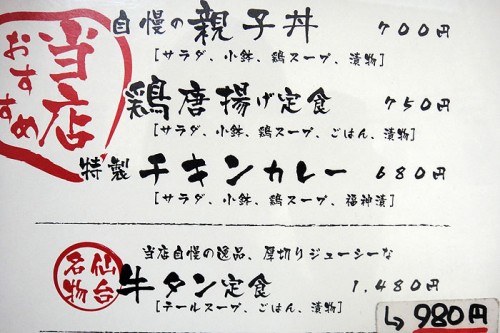 当店
おすすめ
自慢の親子丼 700円
[サラダ、小鉢、鶏スープ、漬物]
鶏唐揚げ定食 750円
[サラダ、小鉢、鶏スープ、ごはん、漬物]
特製チキンカレー 680円
[サラダ、小鉢、鶏スープ、福神漬]
当店自慢の逸品、厚切りジューシーな
仙台名物
牛タン定食 1.480円
[テールスープ、ごはん、漬物]
↳980円